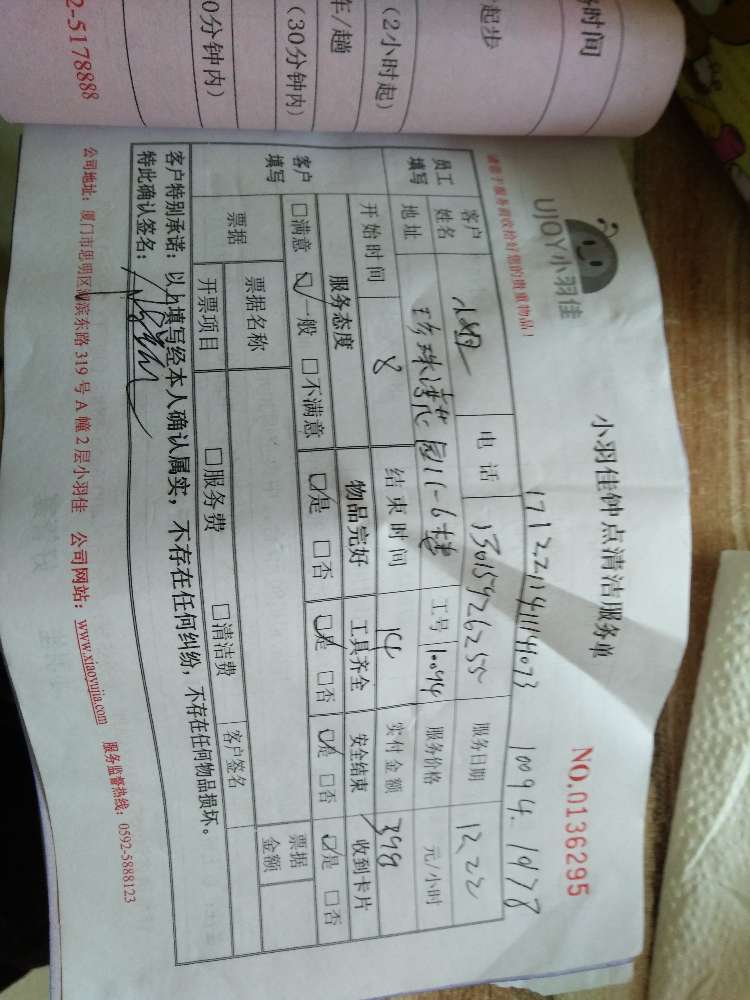 时间
起步
(2小时起)
车/趟
(30分钟内)
0分钟内)
2-5178888
UJOY小羽佳
小羽佳钟点清洁服务单
NO.0136295
10094. 1978
请看于服务前收检好您的贵重物品!
员工填写
客户姓名
电话
13015926255
服务日期
12.22
地址
珍珠湾花园11-6楼
工号
10094
服务价格
元/小时
开始时间
8
结束时间
14
实付金额
398
客户填写
服务态度
物品完好
工具齐全
安全结束
收到卡片
□满意 ☑一般 □不满意
☑是 □否
☑是 □否
☑是 □否
☑是 □否
票据
票据名称
票据金额
开票项目
□服务费
□清洁费
客户签名
客户特别承诺:以上填写经本人确认属实,不存在任何纠纷,不存在任何物品损坏。
特此确认签名:
公司地址:厦门市思明区湖滨东路319号A幢2层小羽佳 公司网站:www.xiaoyujia.com 服务监督热线:0592-5888123